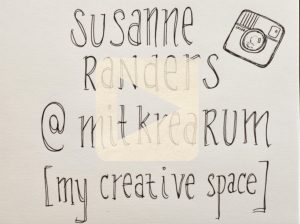 SUSANNE
RANDERS
@ mitkreaRUM
[my creative space]